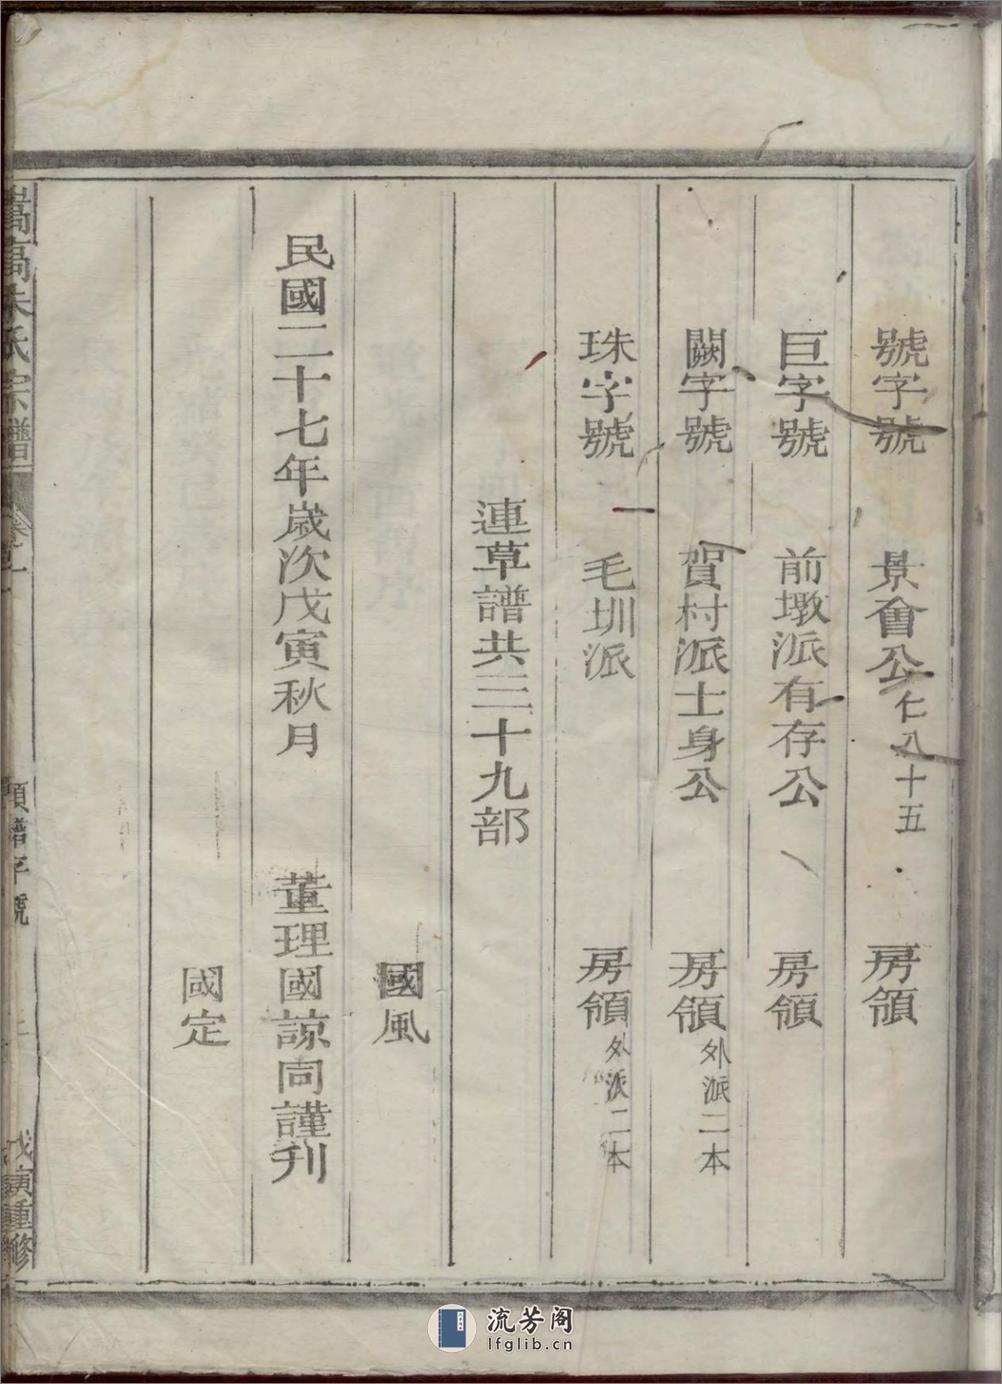 號字號 景會公仁八十五 房領
巨字號 前墩派有存公 房領
闕字號 賀村派士身公 房領外派二本
珠字號 毛圳派 房領外派二本
連草譜共三十九部
國風
民國二十七年歲次戊寅秋月 董理國諒同謹刊
國定
嵩高朱氏宗譜 卷首 領譜字號 戊寅重修
流芳阁
lfglib.cn